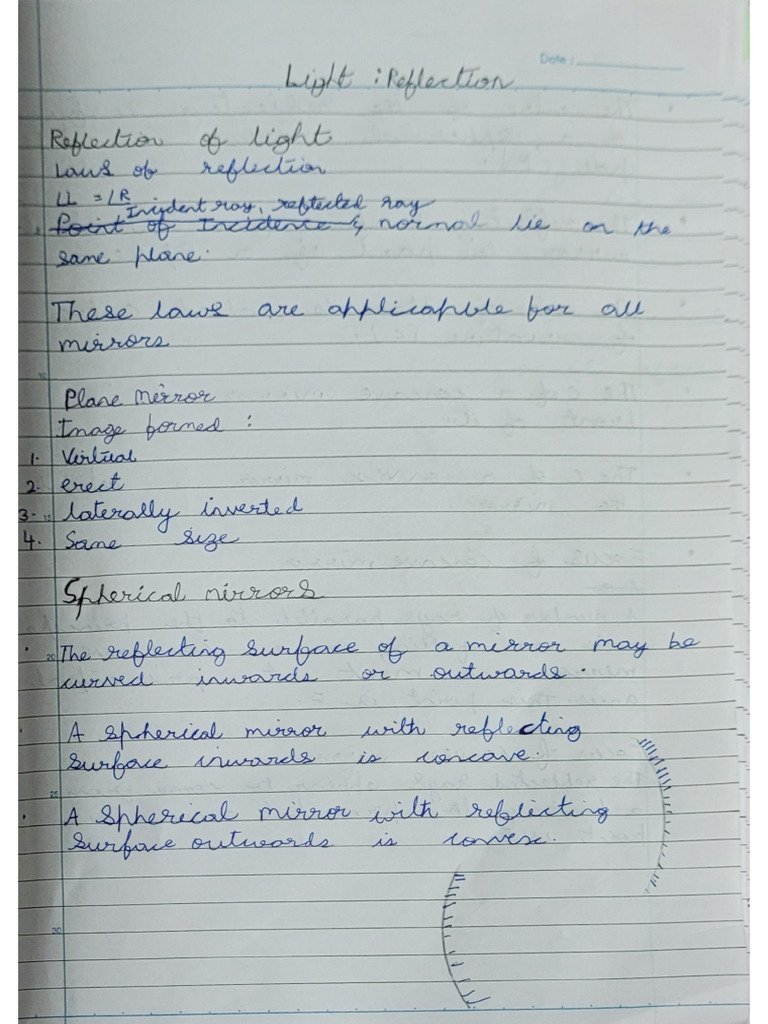 Date :
Light : Reflection
Reflection of light
Laws of reflection
∠i = ∠R
Incident ray, reflected ray
Point of Incidence & normal lie on the
same plane.
These laws are applicapble for all
mirrors
10
Plane mirror
Image formed :
1. Virtual
2. erect
3. 15 laterally inverted
4. Same size
Spherical mirrors
20 The reflecting surface of a mirror may be
curved inwards or outwards.
A spherical mirror with reflecting
surface inwards is concave.
25
A spherical mirror with reflecting
surface outwards is convex.
30